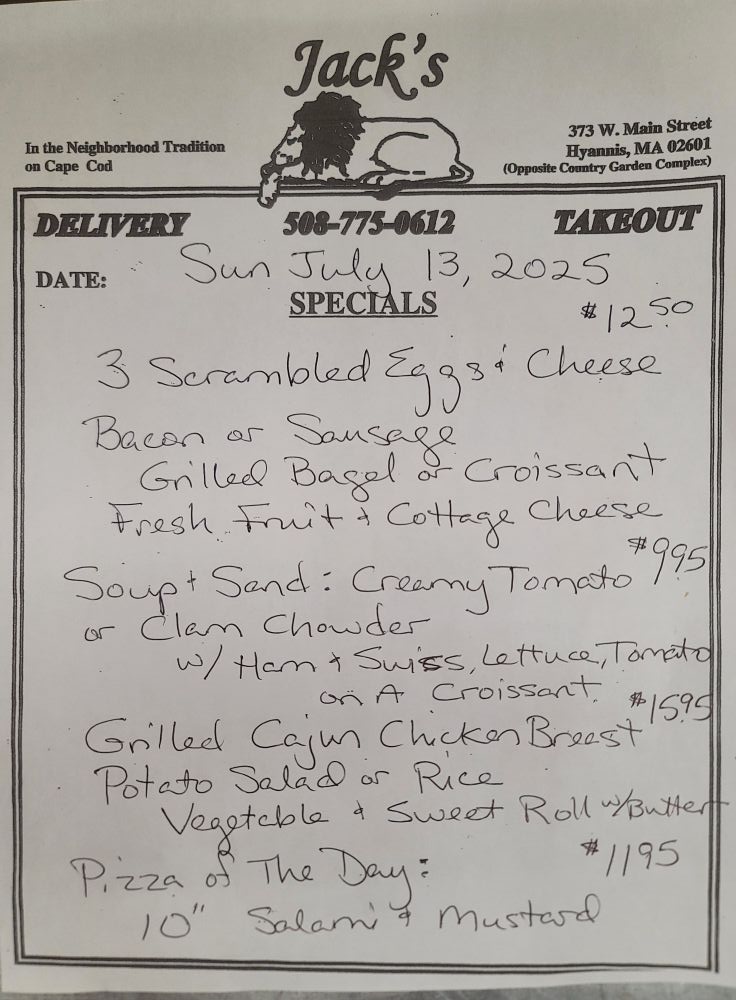 Jack's
In the Neighborhood Tradition
on Cape Cod
373 W. Main Street
Hyannis, MA 02601
(Opposite Country Garden Complex)
DELIVERY 508-775-0612 TAKEOUT
DATE: Sun July 13, 2025
SPECIALS
$12.50
3 Scrambled Eggs & Cheese
Bacon or Sausage
Grilled Bagel or Croissant
Fresh Fruit & Cottage Cheese
$995
Soup & Sand: Creamy Tomato
or Clam Chowder
w/ Ham & Swiss, Lettuce, Tomato
on A Croissant.
$1595
Grilled Cajun Chicken Breast
Potato Salad or Rice
Vegetable & Sweet Roll w/Butter
Pizza of The Day: $1195
10" Salami & Mustard